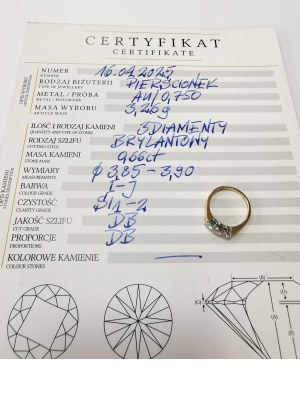 CERTYFIKAT
CERTIFICATE
NUMER 16.01.2025
NUMBER
RODZAJ BIŻUTERII PIERŚCIONEK
TYPE OF JEWELLERY
METAL / PRÓBA AU/0,750
METAL / HALLMARK
MASA WYROBU 3,26g
ARTICLE WEIGHT
ILOŚĆ I RODZAJ KAMIENI 3 DIAMENTY
QUANTITY AND TYPE OF STONES
RODZAJ SZLIFU BRYLANTOWY
CUTTING STYLE
MASA KAMIENI 0,66ct
STONES WEIGHT
WYMIARY φ 3,85 - 3,90
MEASUREMENTS
BARWA I-J
COLOUR GRADE
CZYSTOŚĆ SI1-2
CLARITY GRADE
JAKOŚĆ SZLIFU DB
CUT GRADE
PROPORCJE DB
PROPORTIONS
KOLOROWE KAMIENIE —
COLOUR STONES
OPIS KAMIENI
STONES DESCRIPTION